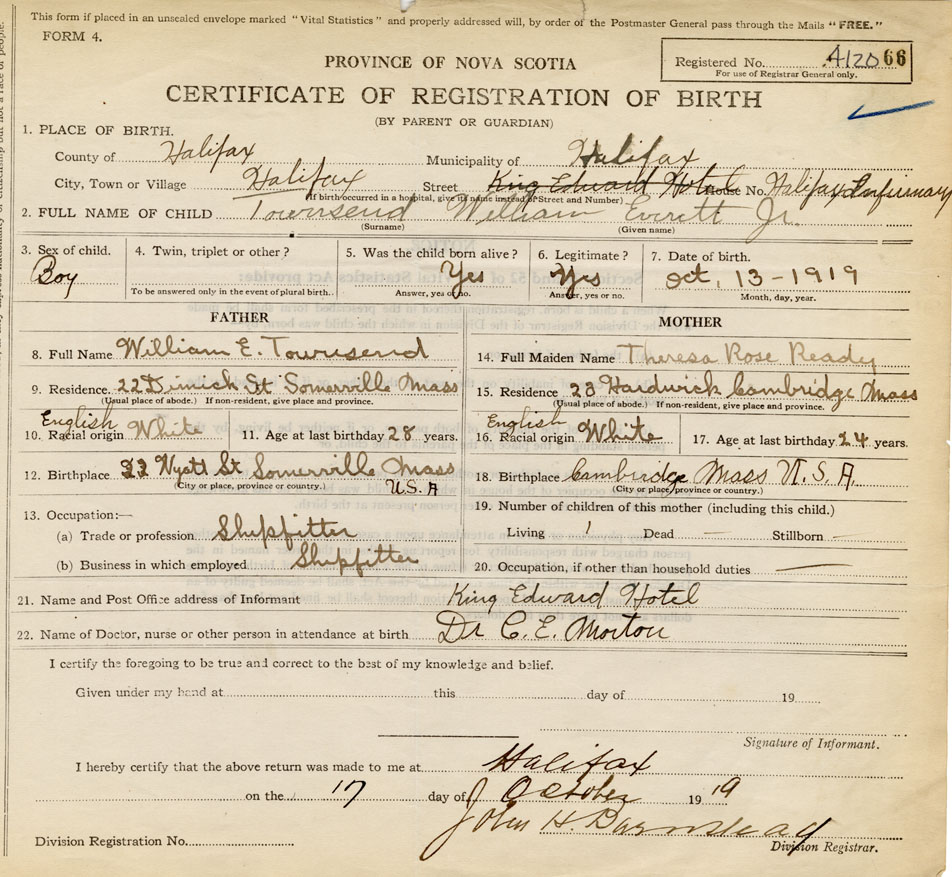 This form if placed in an unsealed envelope marked "Vital Statistics" and properly addressed will, by order of the Postmaster General pass through the Mails "FREE."
FORM 4.
Registered No. 4120 66
For use of Registrar General only.
PROVINCE OF NOVA SCOTIA
CERTIFICATE OF REGISTRATION OF BIRTH
(BY PARENT OR GUARDIAN)
1. PLACE OF BIRTH.
County of Halifax Municipality of Halifax
City, Town or Village Halifax Street King Edward Hotel House No. Halifax Infirmary
(If birth occurred in a hospital, give its name instead of Street and Number)
2. FULL NAME OF CHILD Townsend William Everett Jr.
(Surname) (Given name)
3. Sex of child. Boy
4. Twin, triplet or other?
To be answered only in the event of plural birth.
5. Was the child born alive? Yes
Answer, yes or no.
6. Legitimate? Yes
Answer, yes or no.
7. Date of birth. Oct, 13-1919
Month, day, year.
FATHER
8. Full Name William E. Townsend
9. Residence. 22 Dimick St Somerville Mass
(Usual place of abode.) If non-resident, give place and province.
English
10. Racial origin White 11. Age at last birthday 28 years.
12. Birthplace 22 Wyatt St Somerville Mass
(City or place, province or country.) U.S.A
13. Occupation:—
(a) Trade or profession. Shipfitter
(b) Business in which employed Shipfitter
MOTHER
14. Full Maiden Name Theresa Rose Ready
15. Residence 23 Hardwick Cambridge Mass
(Usual place of abode.) If non-resident, give place and province.
English
16. Racial origin White 17. Age at last birthday 24 years.
18. Birthplace Cambridge Mass U.S.A.
(City or place, province or country.)
19. Number of children of this mother (including this child.)
Living 1 Dead — Stillborn —
20. Occupation, if other than household duties —
21. Name and Post Office address of Informant King Edward Hotel
22. Name of Doctor, nurse or other person in attendance at birth Dr C. E. Morton
I certify the foregoing to be true and correct to the best of my knowledge and belief.
Given under my hand at this day of 19
Signature of Informant.
I hereby certify that the above return was made to me at Halifax
on the 17 day of October 19 19
John H. Barnstead
Division Registration No. Division Registrar.